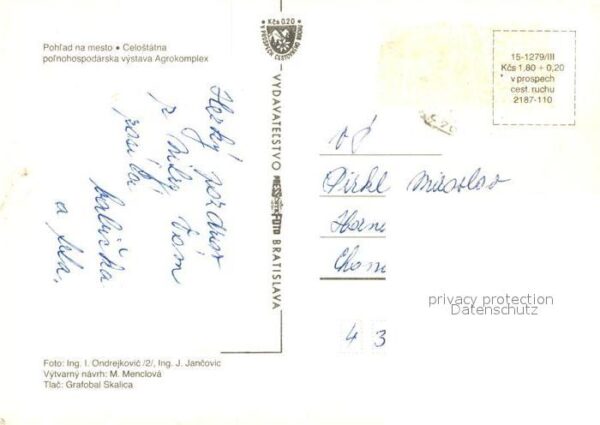 Pohľad na mesto • Celoštátna
poľnohospodárska výstava Agrokomplex
Kčs 0,20
V PROSPECH CESTOVNÉHO RUCHU
15-1279/III
Kčs 1,80 + 0,20
v prospech
cest. ruchu
2187-110
Hezký pozdrav
z Nitry Vám
posílá
babička
a děda.
VYDAVATEĽSTVO PRESSFOTO BRATISLAVA
Pirkl Miroslav
Horní
Chom
4 3
privacy protection
Datenschutz
Foto: Ing. I. Ondrejkovič /2/, Ing. J. Jančovic
Výtvarný návrh: M. Menclová
Tlač: Grafobal Skalica